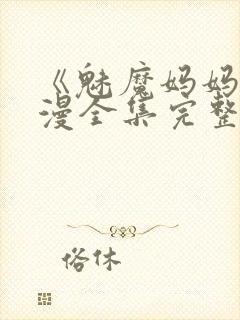 《魅魔妈妈
漫全集完整
俗休